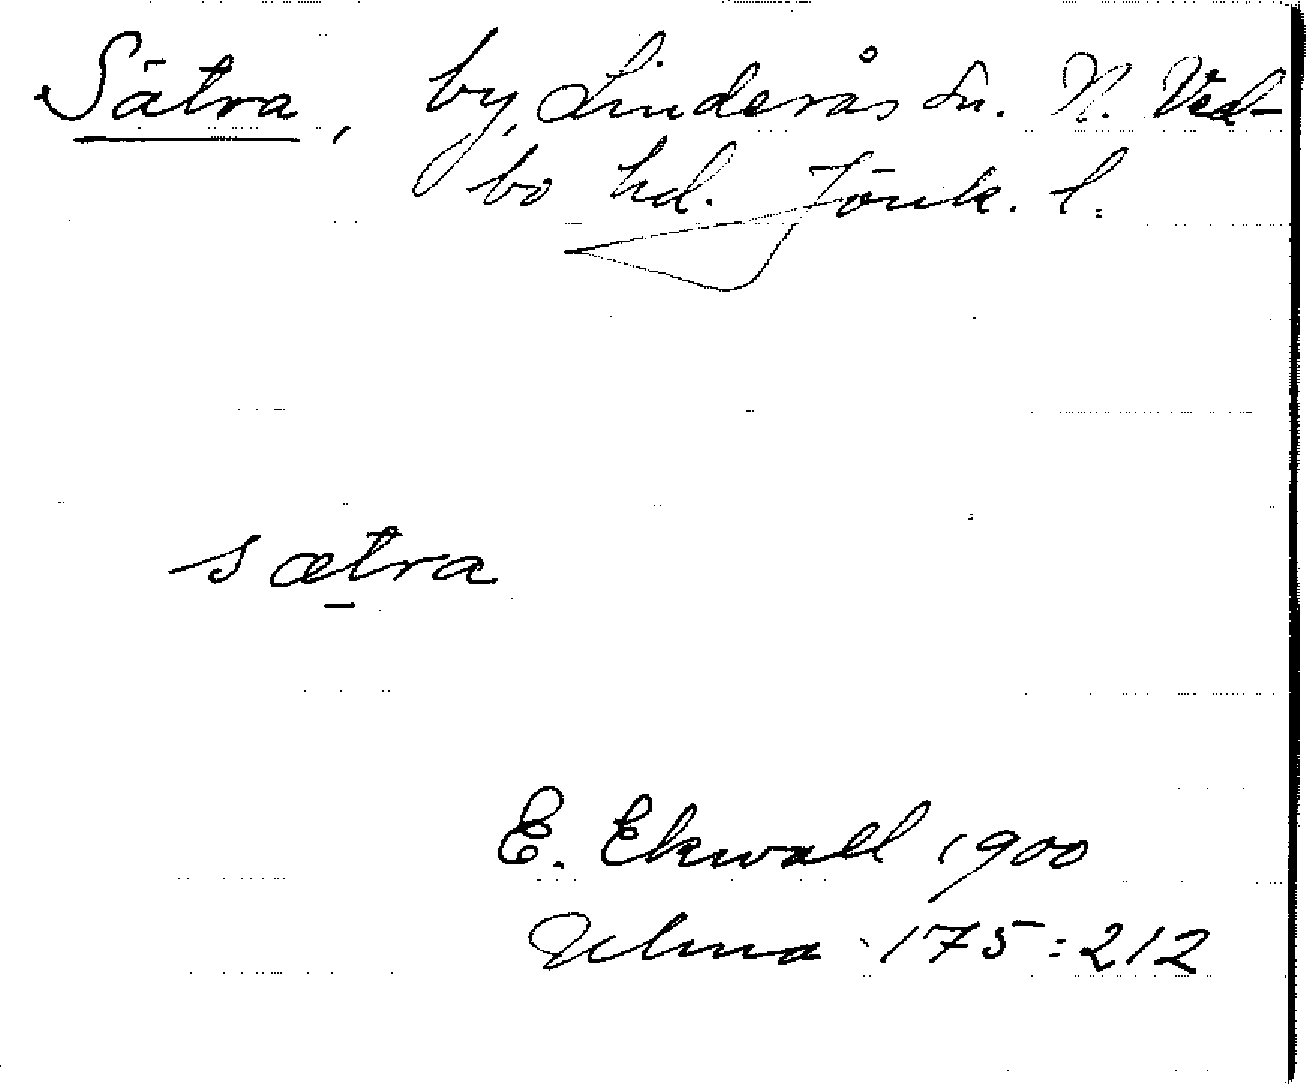 Sätra, by, Linderås sn. N. Ved-
bo hd. Jönk. l.
sætra
E. Ekwall 1900
Ulma 175:212